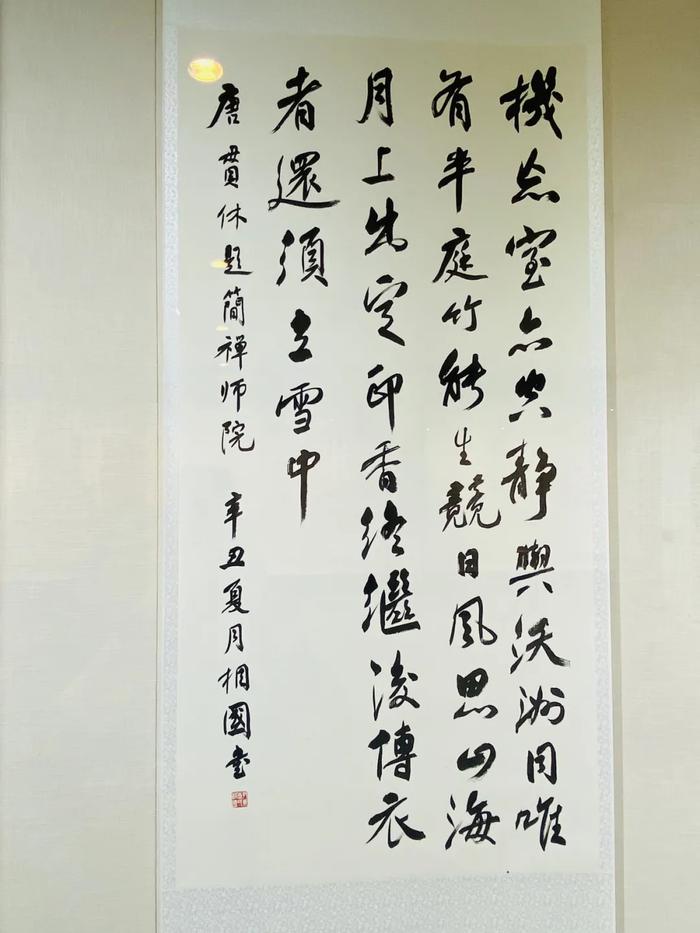 機忘室亦空静與沃洲同唯
有半庭竹能生競日風思山海
月上出定印香終繼後傳衣
者還須立雪中
唐貫休題簡禪师院 辛丑夏月相國書